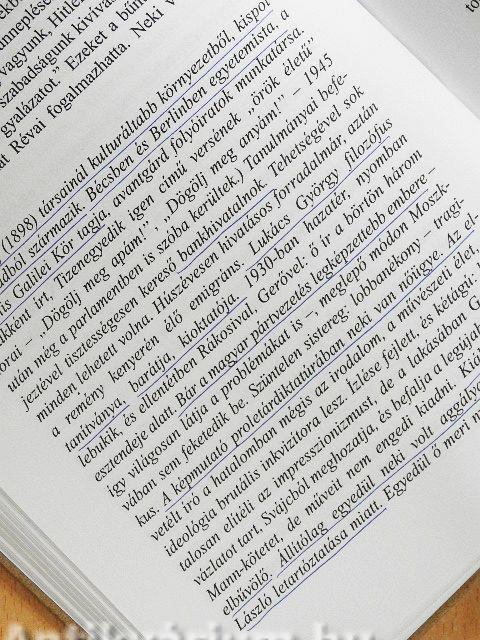 ünneplése
vagyunk, Hitle
szabadságunk kivív
gyalázatot." Ezeket a bűn
Révai fogalmazhatta. Neki v
(1899) társainál kulturáltabb környezetből, kispol
ából származik. Bécsben és Berlinben egyetemista, a
Galilei Kör tagja, avantgárd folyóiratok munkatársa.
ként írt, Tizenegyedik igen című versének „örök életű"
sorai – „Dögölj meg apám!", „Dögölj meg anyám!" – 1945
után még a parlamentben is szóba kerültek.) Tanulmányai befe-
jeztével tisztességesen kereső bankhivatalnok. Tehetségével sok
minden lehetett volna. Húszévesen hivatásos forradalmár, aztán
a remény kenyerén élő emigráns. Lukács György filozófus
tanítványa, barátja, kioktatója. 1930-ban hazatér, nyomban
lebukik, és ellentétben Rákosival, Gerővel: ő ír a börtön három
esztendeje alatt. Bár a magyar pártvezetés legképzettebb embere –
így világosan látja a problémákat is –, meglepő módon Moszk-
vában sem feketedik be. Szüntelen sistereg: lobbanékony – tragi-
kus. A képmutató proletárdiktatúrában neki van nőügye. Az el-
vetélt író a hatalomban mégis az irodalom, a művészeti élet,
ideológia brutális inkvizítora lesz. Ízlése fejlett, és kétlaki:
talosan elítéli az impresszionizmust, de a lakásában
vázlatot tart, Svájcból meghozatja, és befalja a legújab
Mann-kötetet, de műveit nem engedi kiadni. Kiá
elbűvölő. Állítólag egyedül neki volt aggálya
László letartóztatása miatt. Egyedül ő meri